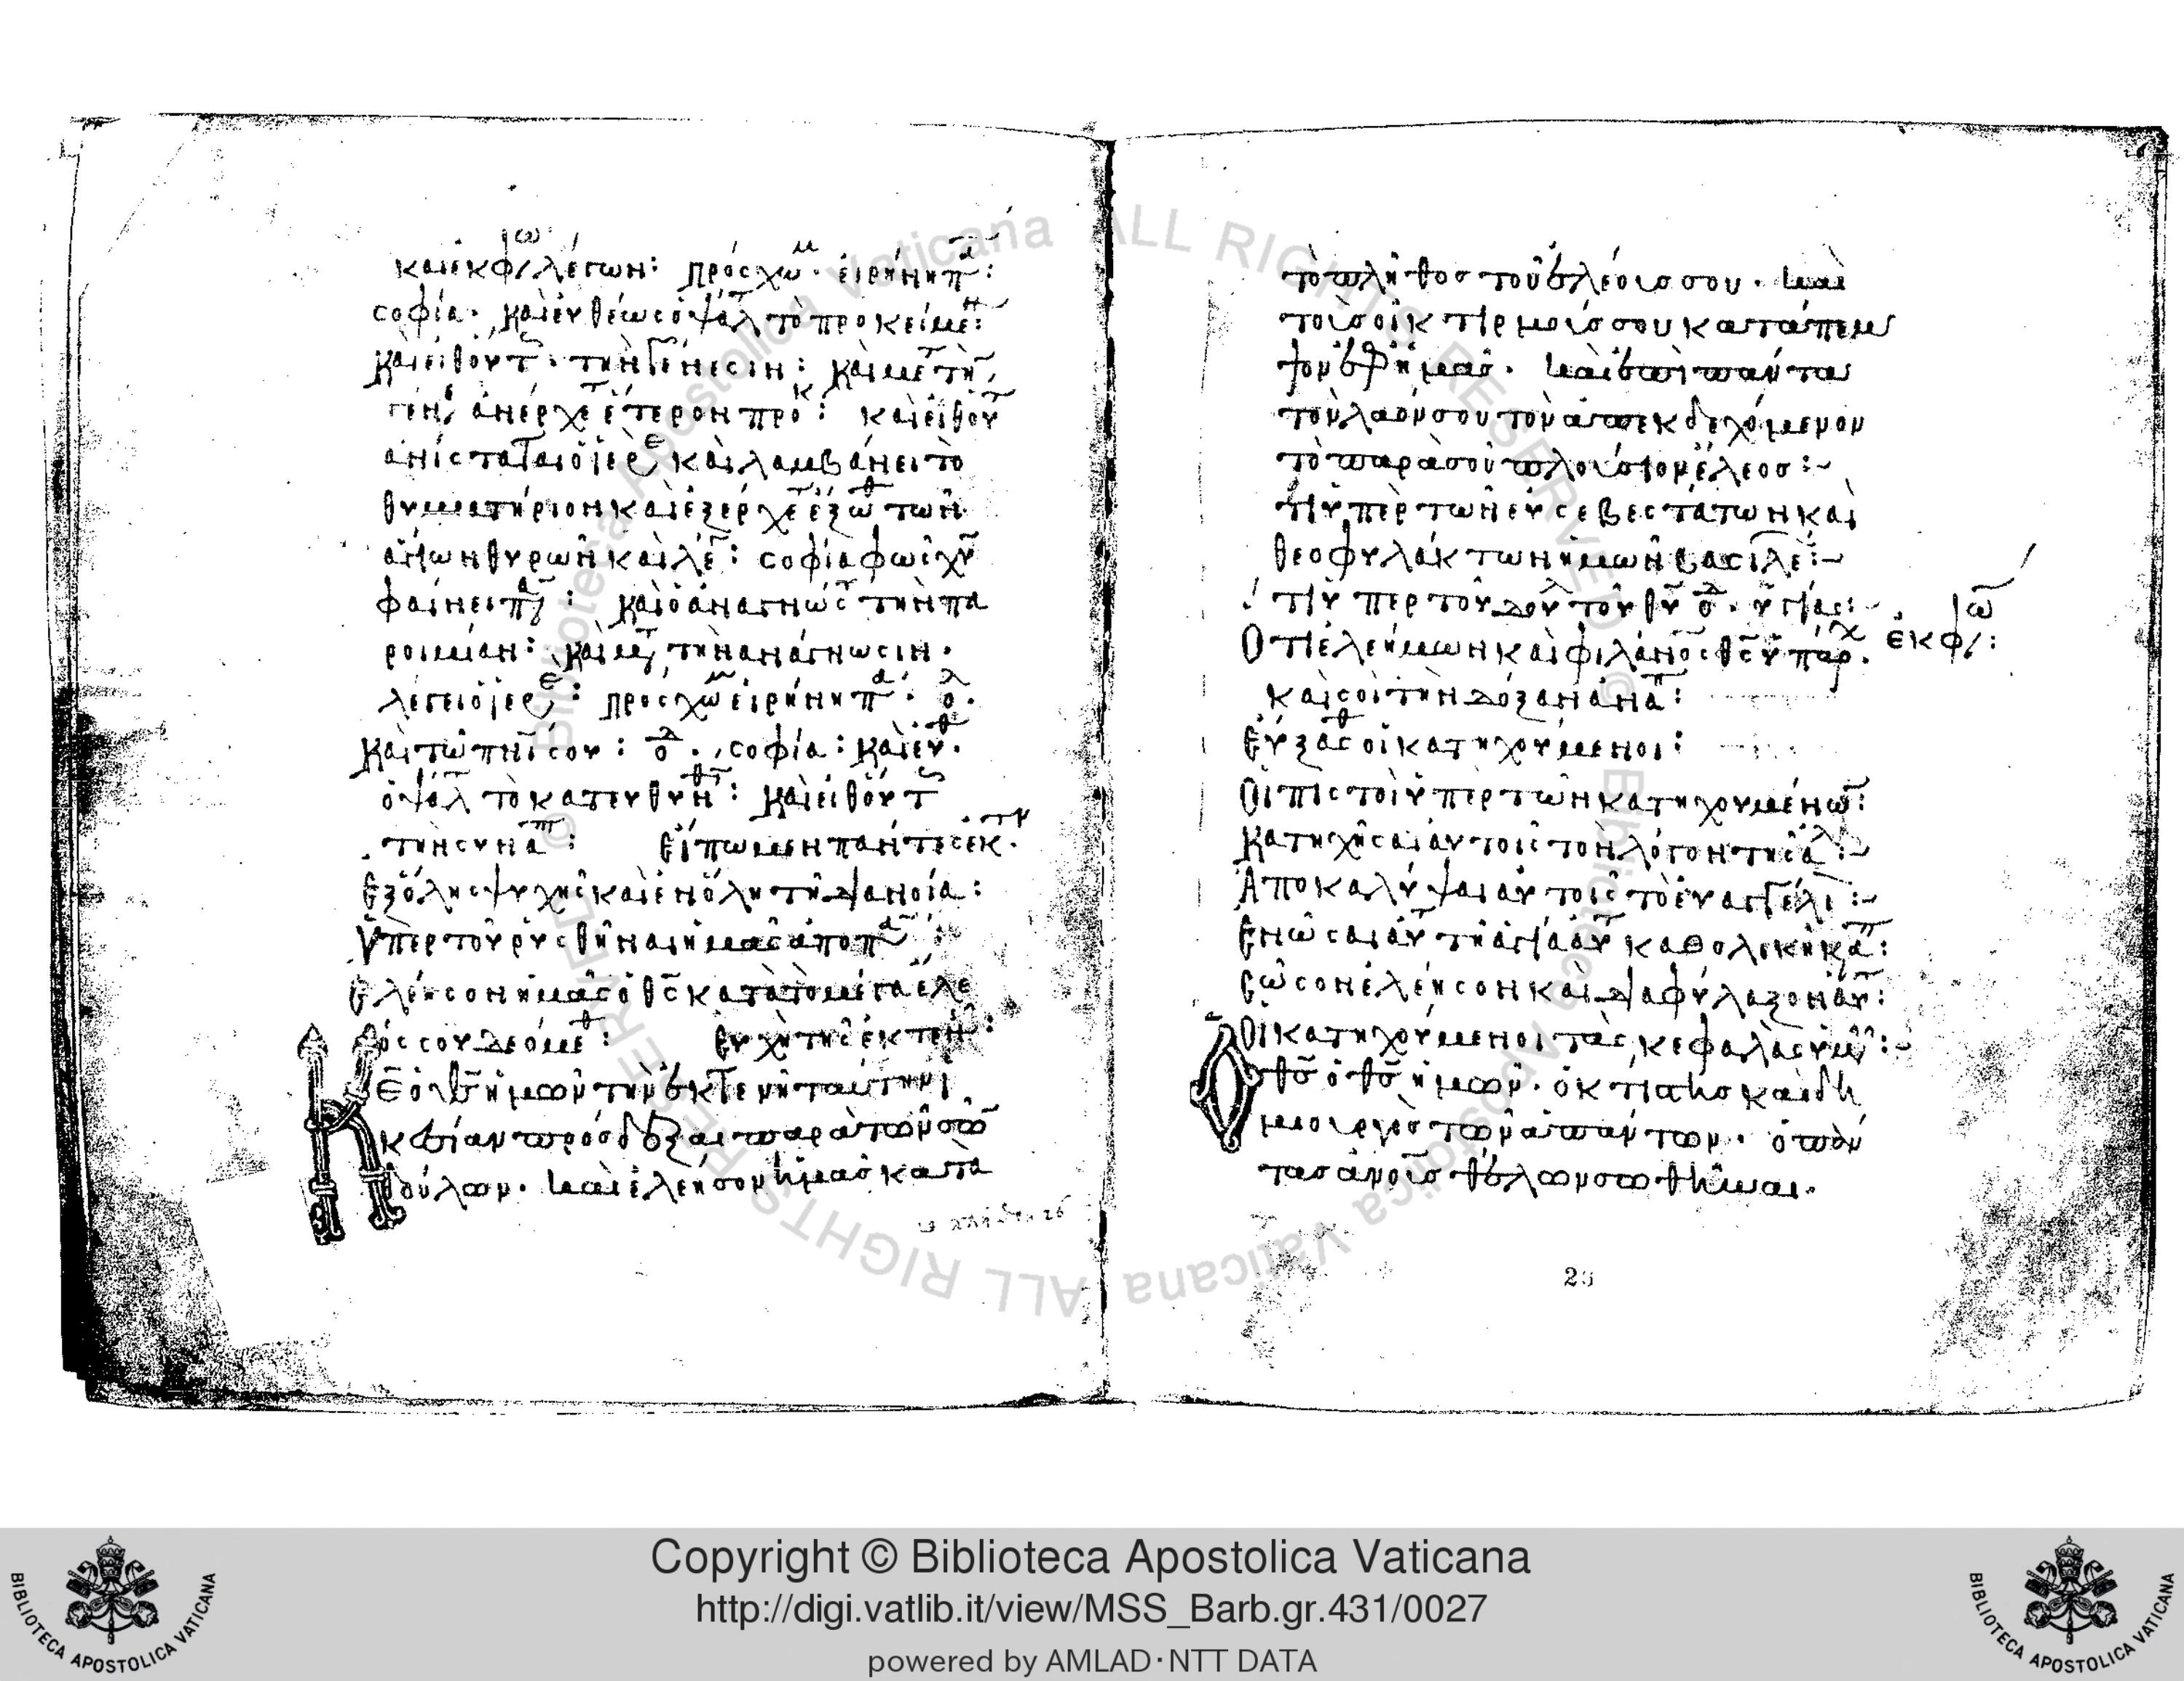 καὶ ἐκφω λέγων: πρόσχωμ. εἰρήνη πᾶ:
σοφία. καὶ εὐθέως ὁ ψάλτ τὸ προκείμεν:
καὶ εἰθ οὕτ. τὴν Γένεσιν: καὶ μετ τὴν
γέν, ἀνέρχετ ἕτερον προκ: καὶ εἰθ οὕτ
ἀνίσταται ὁ ἱερε καὶ λαμβάνει τὸ
θυμιατήριον καὶ ἐξέρχετ ἔξωθ τῶν
ἁγίων θυρῶν καὶ λέγ: σοφία φῶς χυ
φαίνει πᾶσ: καὶ ὁ ἀναγνώστ τὴν πα
ροιμίαν: καὶ μετ τὴν ἀνάγνωσιν.
λέγει ὁ ἱερε: πρόσχωμ εἰρήνη πᾶ: ὁ λ.
Καὶ τῶ πνι σου: ὁ λ. σοφία: καὶ εὐθ.
ὁ ψάλτ τὸ κατευθυνθτ: καὶ εἰθ οὕτ
τὴν συναπτ: Εἴπωμεν πάντες ἐκτν.
Ἐξ ὅλης ψυχῆς καὶ ἐν ὅλη τῆ διανοία:
Ὑπὲρ τοῦ ῥυσθῆναι ἡμᾶς ἀπὸ πα
Ἐλέησον ἡμᾶς ὁ θς κατὰ τὸ μέγα ἔλε
ός σου δεόμεθ: Εὐχὴ τῆς ἐκτεν:
Κε ὁ θς ἡμῶν τὴν ἐκτενῆ ταύτην ἱ
κεσίαν πρόσδεξαι παρὰ τῶν σῶ
δούλων. καὶ ἐλέησον ἡμᾶς κατὰ
τὸ πλῆθος τοῦ ἐλέους σου. καὶ
τοὺς οἰκτιρμούς σου κατάπεμ
ψον ἐφ ἡμᾶς. καὶ ἐπὶ πάντα
τὸν λαόν σου τὸν ἀπεκδεχόμενον
τὸ παρὰ σοῦ πλούσιον ἔλεος:
Ἔτι ὑπὲρ τῶν εὐσεβεστάτων καὶ
θεοφυλάκτων ἡμῶν βασιλέ:
Ἔτι ὑπὲρ τοῦ δούλ τοῦ θυ ὁ δ. ὑγιας:
Ὅτι ἐλεήμων καὶ φιλάνος θς ὑπάρχ. ἐκφω:
καὶ σοὶ τὴν δόξαν ἀναπ:
Εὔξασθ οἱ κατηχούμενοι:
Οἱ πιστοὶ ὑπὲρ τῶν κατηχουμένω:
Κατηχῆσαι αὐτοὺς τὸν λόγον τῆς ἀλ:
Ἀποκαλύψαι αὐτοῖς τὸ εὐαγγέλι:
Ἑνῶσαι αὐτ τῆ ἁγία αὐτ καθολικῆ κ ἀπ:
Σῶσον ἐλέησον καὶ διαφύλαξον αὐτ:
Οἱ κατηχούμενοι τὰς κεφαλὰς ὑμ:
Ὁ θς ὁ θς ἡμῶν. ὁ κτίστης καὶ δη
μιουργὸς τῶν ἁπάντων. ὁ πάν
τας ἀνους θέλων σωθῆναι.
Copyright © Biblioteca Apostolica Vaticana
http://digi.vatlib.it/view/MSS_Barb.gr.431/0027
powered by AMLAD·NTT DATA